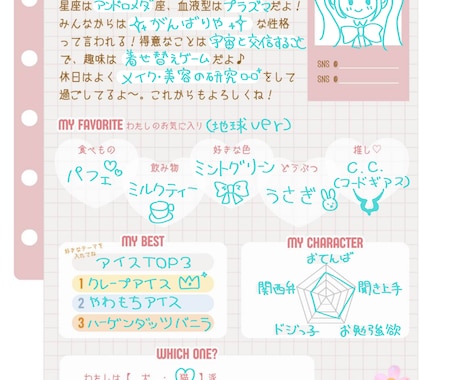 星座はアンドロメダ座、血液型はプラズマだよ!
みんなからは がんばりや な性格
って言われる!得意なことは宇宙と交信すること
で、趣味は 着せ替えゲームだよ♪
休日はよく メイク・美容の研究 をして
過ごしてるよ〜。これからもよろしくね!
SNS
SNS
MY FAVORITE わたしのお気に入り (地球ver)
食べもの
パフェ
飲み物
ミルクティー
好きな色
ミントグリーン
どうぶつ
うさぎ
推し♡
C.C.
(コードギアス)
MY BEST
好きなテーマを
入れてね
アイスTOP3
1 クレープアイス
2 やわもちアイス
3 ハーゲンダッツバニラ
MY CHARACTER
おてんば
関西弁
聞き上手
ドジっ子
お勉強欲
WHICH ONE?
わたしは【 犬 ・ 猫 】派